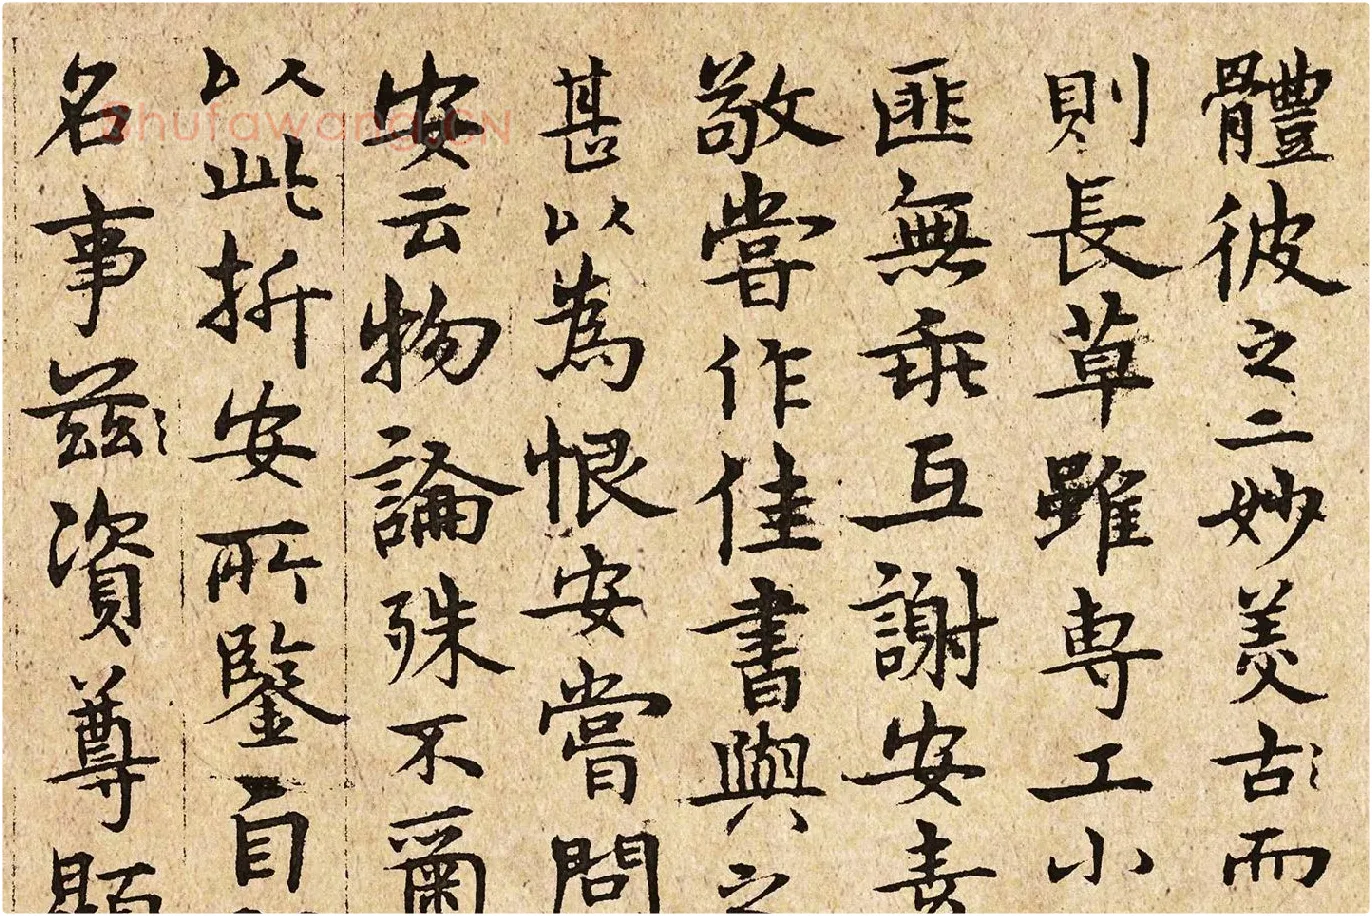 體彼之二妙美古而
則長草雖専工小
匪無乖互謝安素
敬嘗作佳書與之
甚以為恨安嘗問
安云物論殊不爾
以此折安所鑒自
名事茲資尊顯
Shufawang.CN